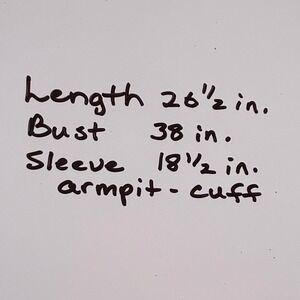 Length 26 1/2 in.
Bust 38 in.
Sleeve 18 1/2 in.
armpit - cuff